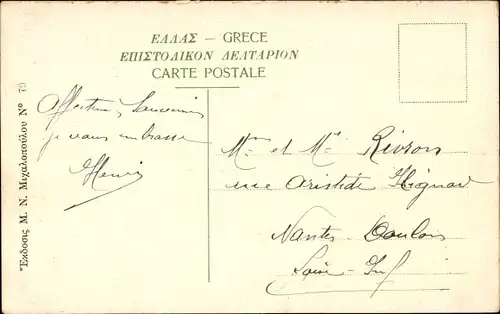 ΕΛΛΑΣ — GRECE
ΕΠΙΣΤΟΛΙΚΟΝ ΔΕΛΤΑΡΙΟΝ
CARTE POSTALE
Ἔκδοσις Μ. Ν. Μιχαλοπούλου Νº 79
Affectueux Souvenirs
je vous embrasse
Henri
Mme et Mr
rue Aristide
Nantes Doulon
Loire-Inf